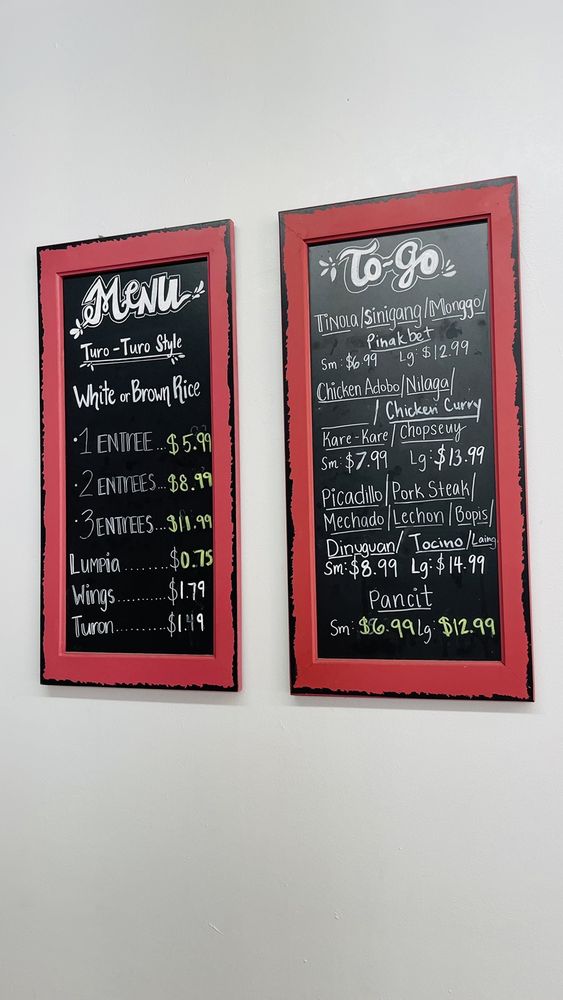 MENU
Turo-Turo Style
White or Brown Rice
·1 ENTREE...$5.99
·2 ENTREES...$8.99
·3 ENTREES...$11.99
Lumpia ........$0.75
Wings..........$1.79
Turon..........$1.49
To-go
Tinola/Sinigang/Monggo/
Pinakbet
Sm: $6.99 Lg: $12.99
Chicken Adobo/Nilaga/
/ Chicken Curry
Kare-Kare/Chopseuy
Sm: $7.99 Lg: $13.99
Picadillo/Pork Steak/
Mechado/Lechon/Bopis/
Dinuguan/ Tocino/Laing
Sm: $8.99 Lg: $14.99
Pancit
Sm: $6.99 Lg: $12.99